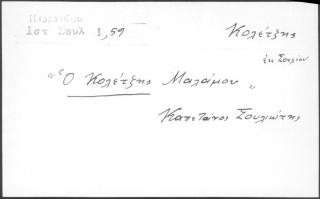 Περραιβου
Ιστ Σουλ Ι,59
Κολέτζης
ἐκ Σουλίου
"Ὁ Κολέτζης Μαλάμου„
Καπετάνος Σουλιώτης